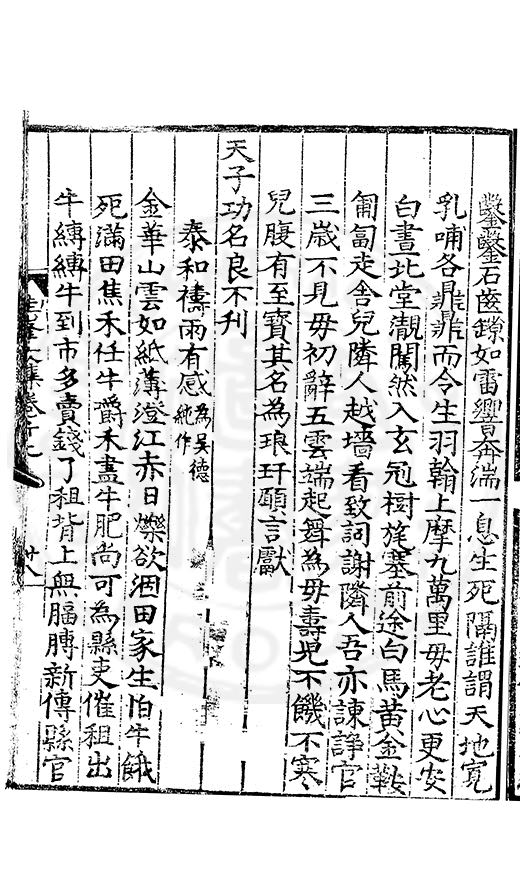 鑿鑿石齒鏁如雷響奔湍一息生死隔誰謂天地寬
乳哺各鼎鼎而令生羽翰上摩九萬里毋老心更安
白晝北堂覯闖然入玄冠樹旄塞前途白馬黃金鞍
匍匐走舍兒隣人越墻看致詞謝隣人吾亦諫諍官
三歲不見毋初辭五雲端起舞為毋壽兒不饑不寒
兒腹有至寶其名為琅玕願言獻
天子功名良不刋
泰和禱雨有感為吳德純作
金華山雲如紙薄澄江赤日爍欲涸田家生怕牛餓
死滿田焦禾任牛嚼禾盡牛肥尚可為縣吏催租出
牛縛縛牛到市多賣錢了租背上無膃膊新傳縣官
文集卷十
廿八